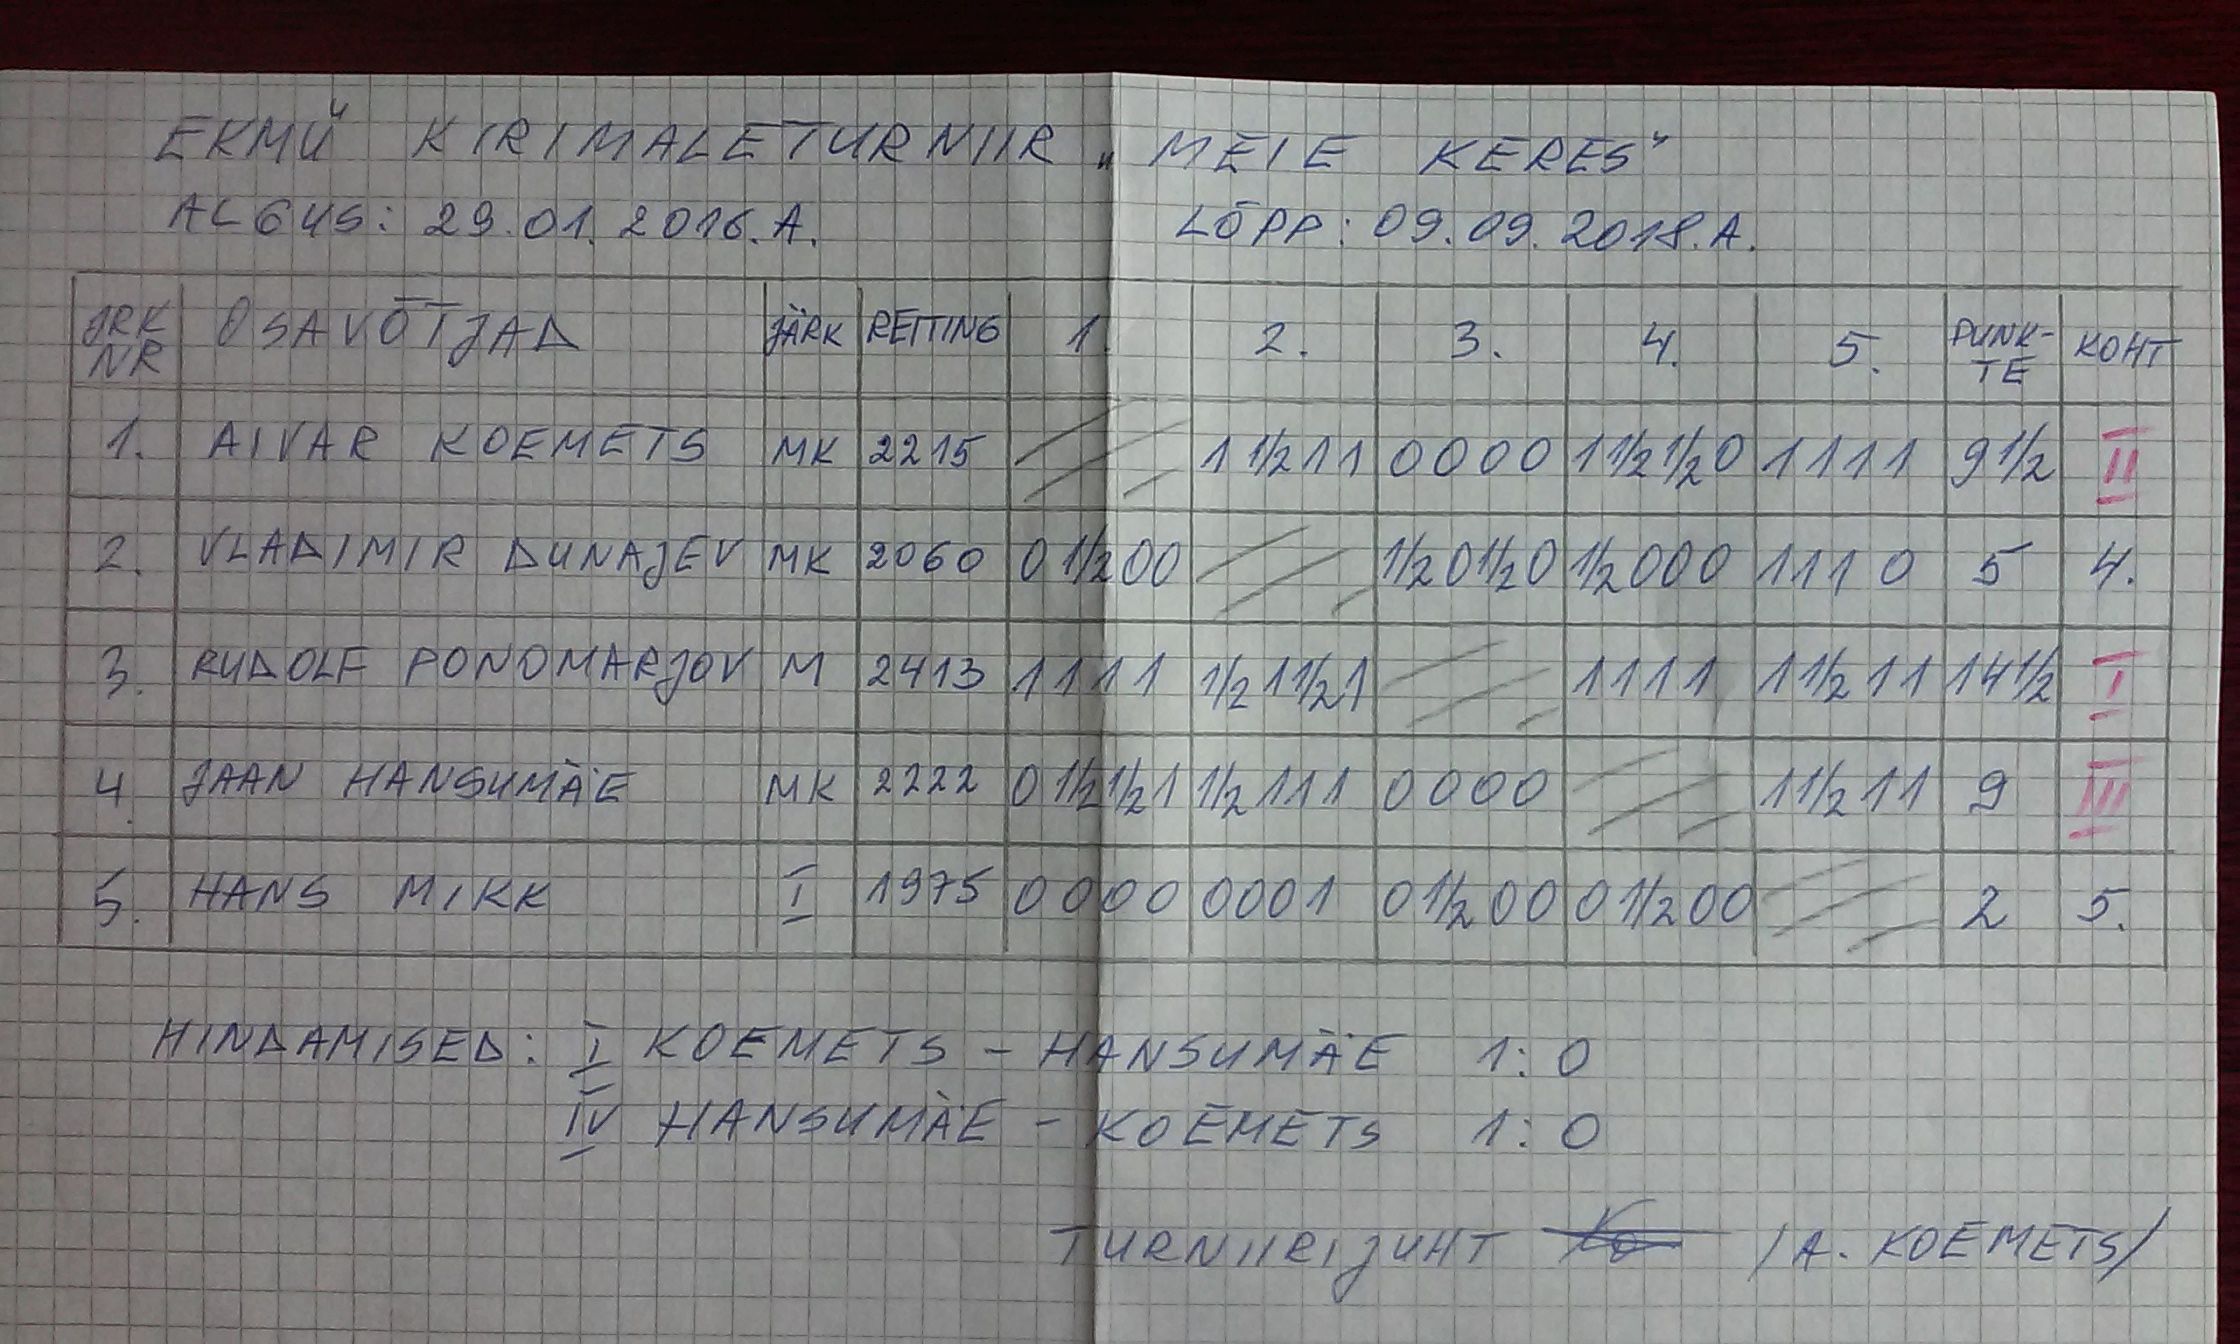 EKMÜ KIRIMALETURNIIR „MEIE KERES"
ALGUS: 29.01.2016.A. LÕPP: 09.09.2018.A.
JRK NR OSAVÕTJAD JÄRK REITING 1. 2. 3. 4. 5. PUNK-TE KOHT
1. AIVAR KOEMETS MK 2215 1 1/2 1 1 0 0 0 0 1 1/2 1/2 0 1 1 1 1 9 1/2 II
2. VLADIMIR DUNAJEV MK 2060 0 1/2 0 0 1/2 0 1/2 0 1/2 0 0 0 1 1 1 0 5 4.
3. RUDOLF PONOMARJOV M 2413 1 1 1 1 1/2 1 1/2 1 1 1 1 1 1 1/2 1 1 14 1/2 I
4. JAAN HANSUMÄE MK 2222 0 1/2 1/2 1 1/2 1 1 1 0 0 0 0 1 1/2 1 1 9 III
5. HANS MIKK I 1975 0 0 0 0 0 0 0 1 0 1/2 0 0 0 1/2 0 0 2 5.
HINDAMISED: I KOEMETS - HANSUMÄE 1:0
IV HANSUMÄE - KOEMETS 1:0
TURNIIRIJUHT /A. KOEMETS/